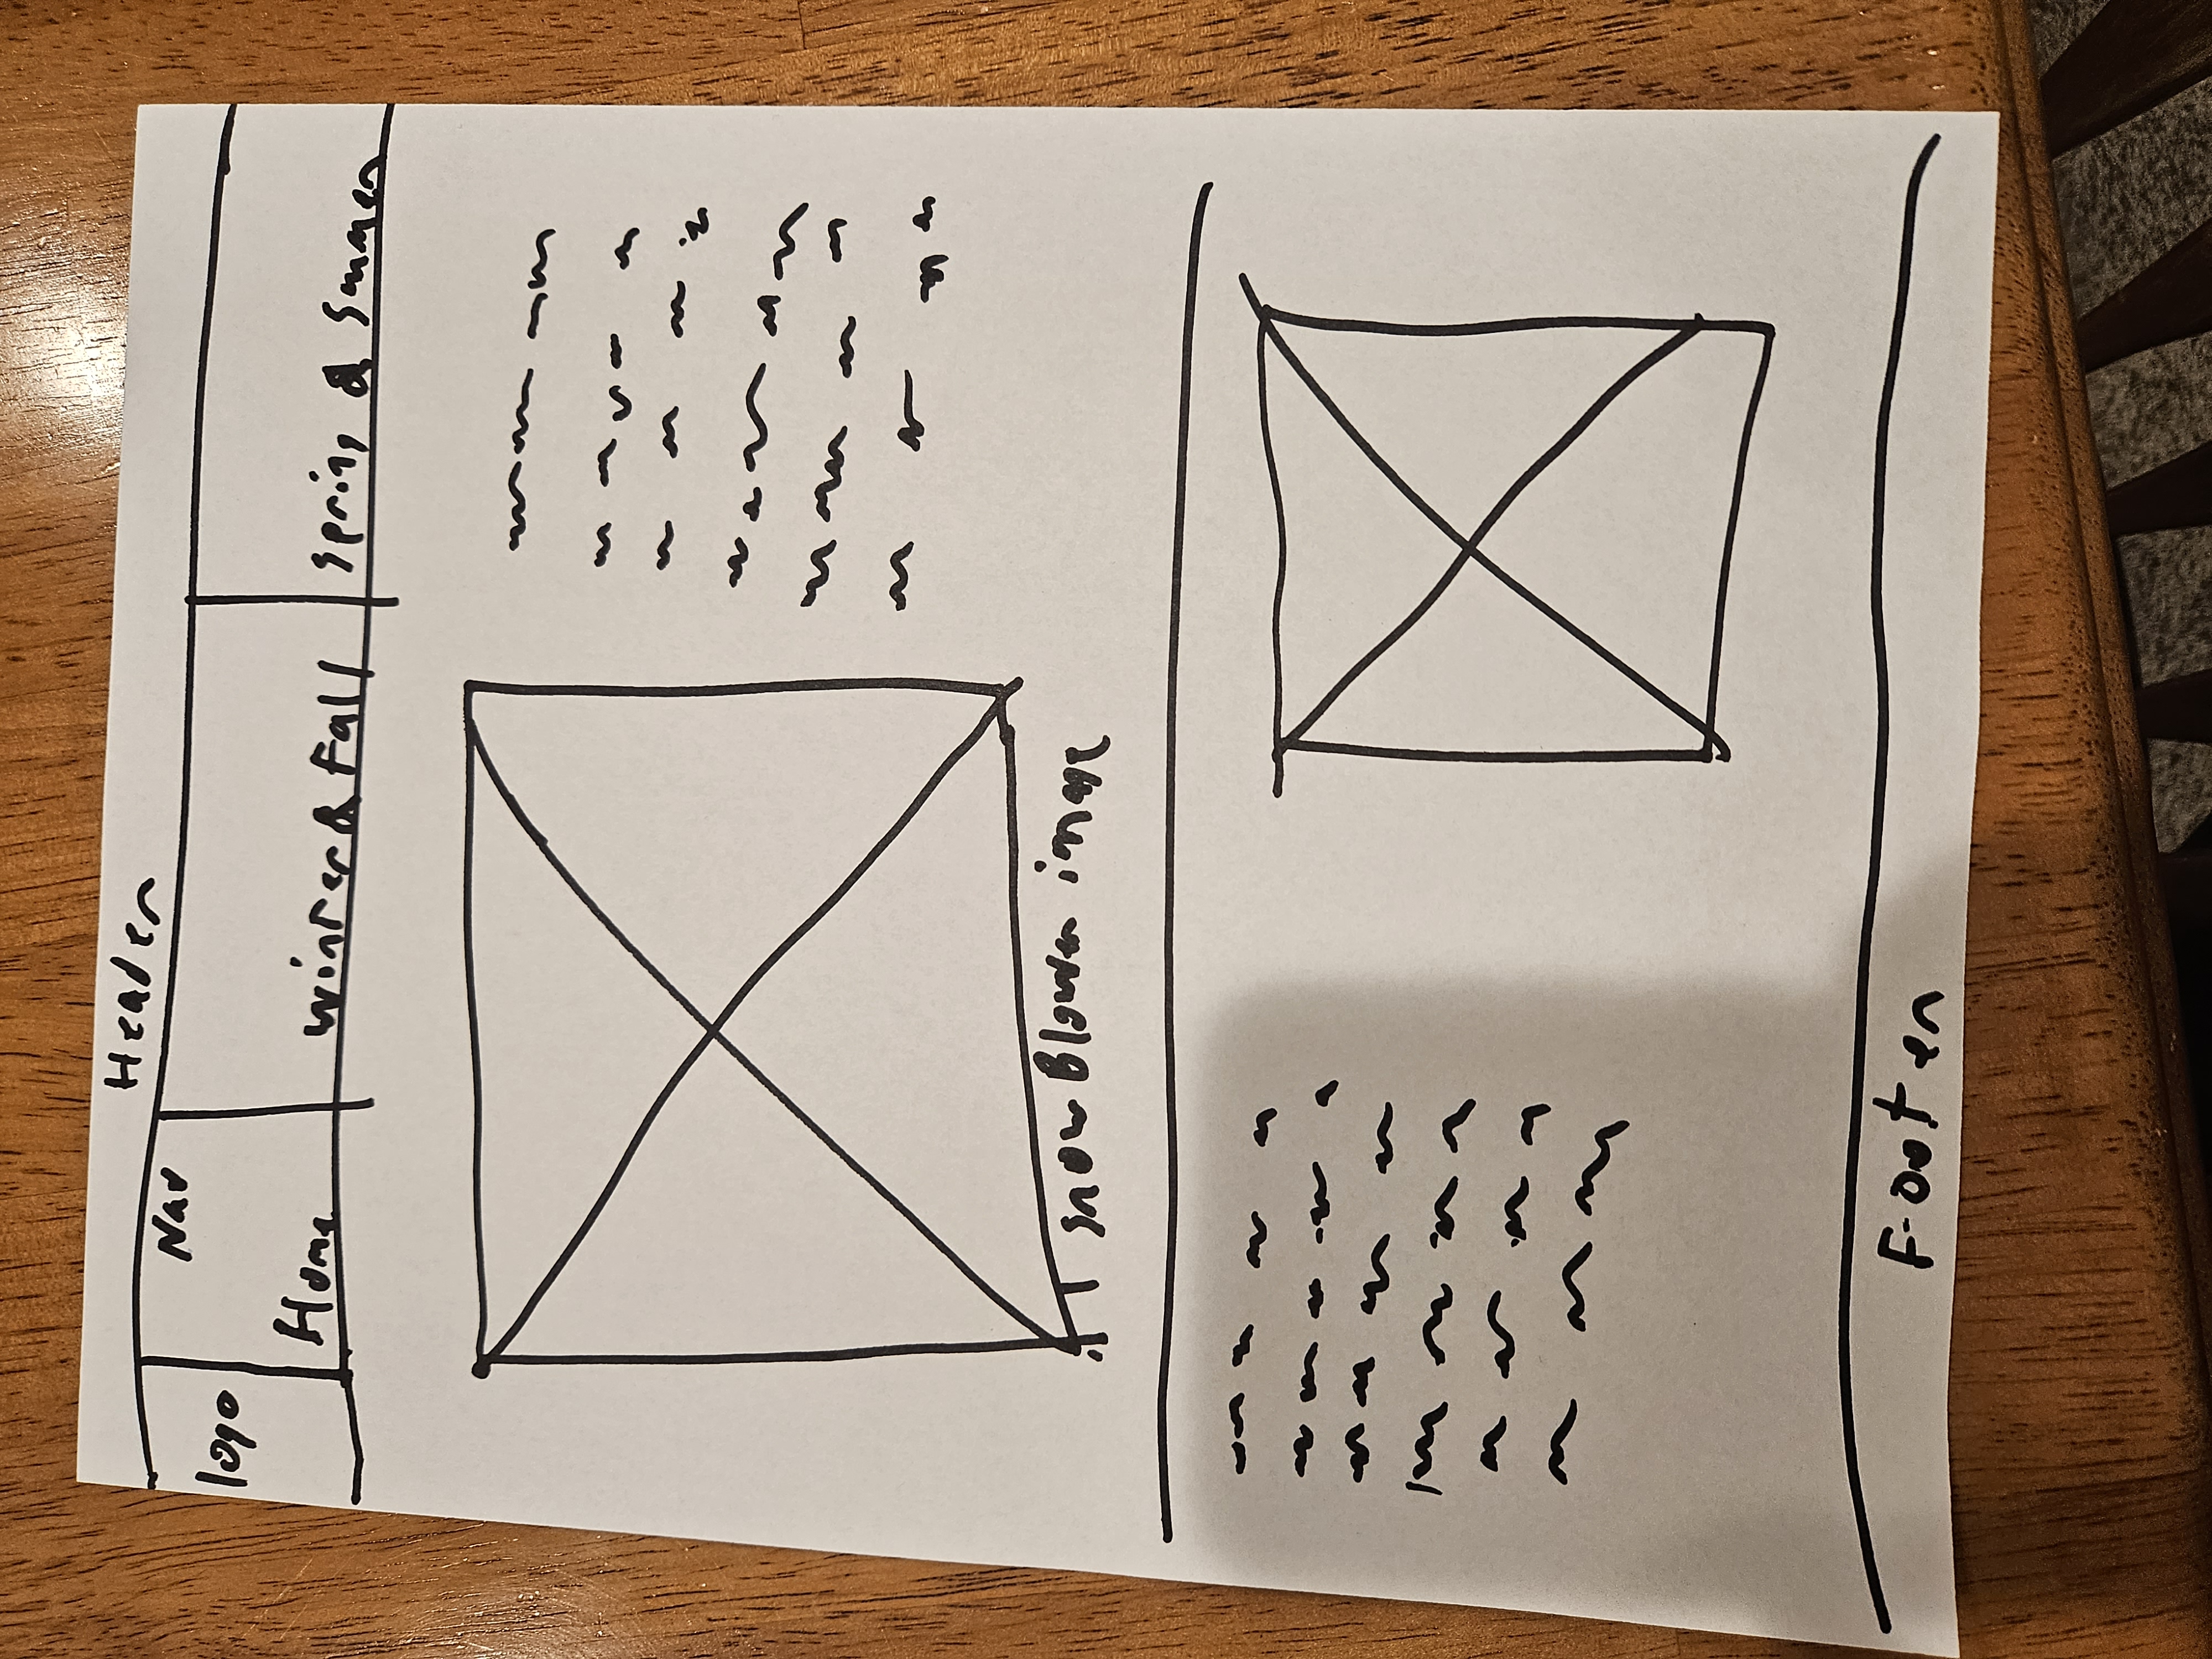 Header
Nav
logo
Home
winter & Fall
spring & Summer
snow Blower image
Footer